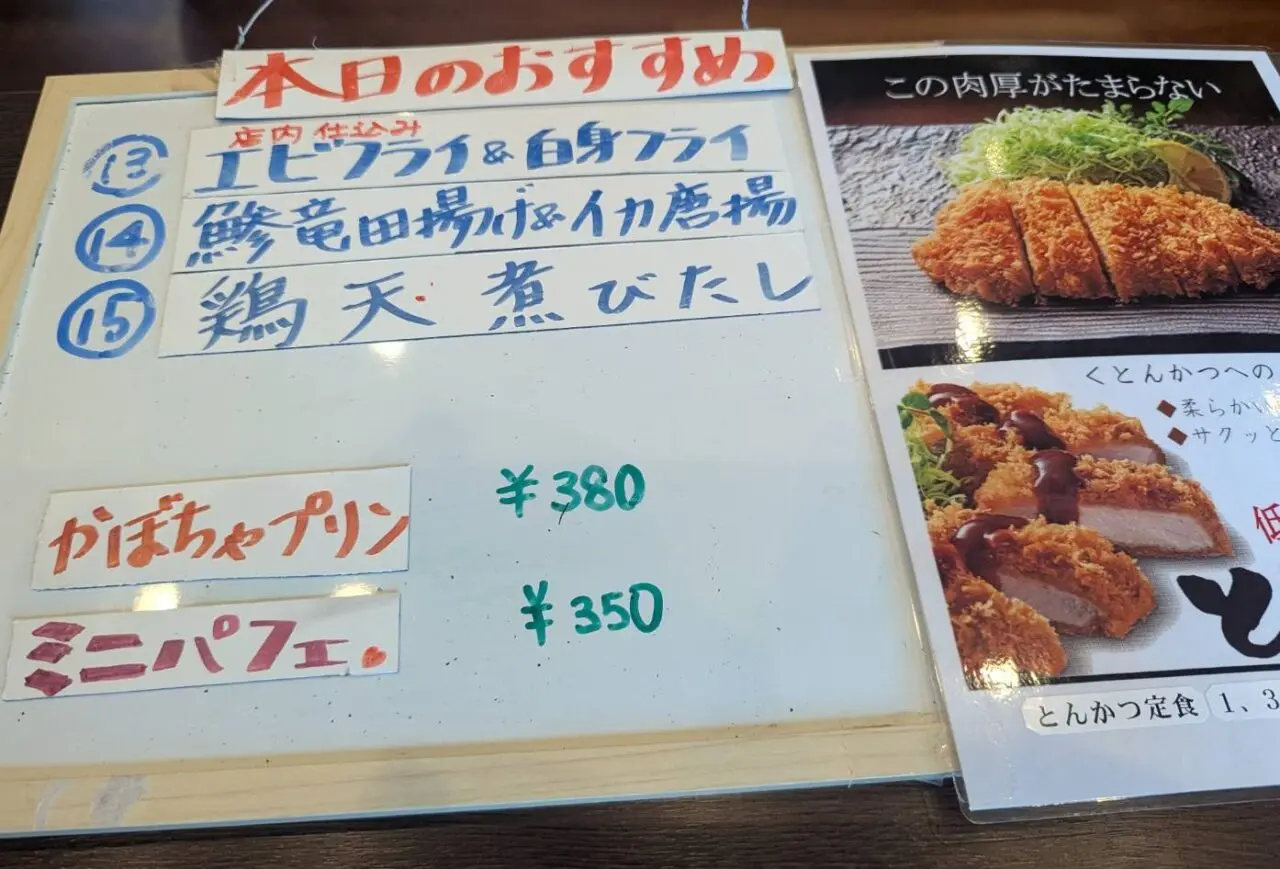 本日のおすすめ
店内仕込み
⑬ エビフライ&白身フライ
⑭ 鯵竜田揚げ&イカ唐揚
⑮ 鶏天煮びたし
かぼちゃプリン ¥380
ミニパフェ ¥350
この肉厚がたまらない
くとんかつへの
◆柔らかい
◆サクッと
低
と
とんかつ定食 1、3